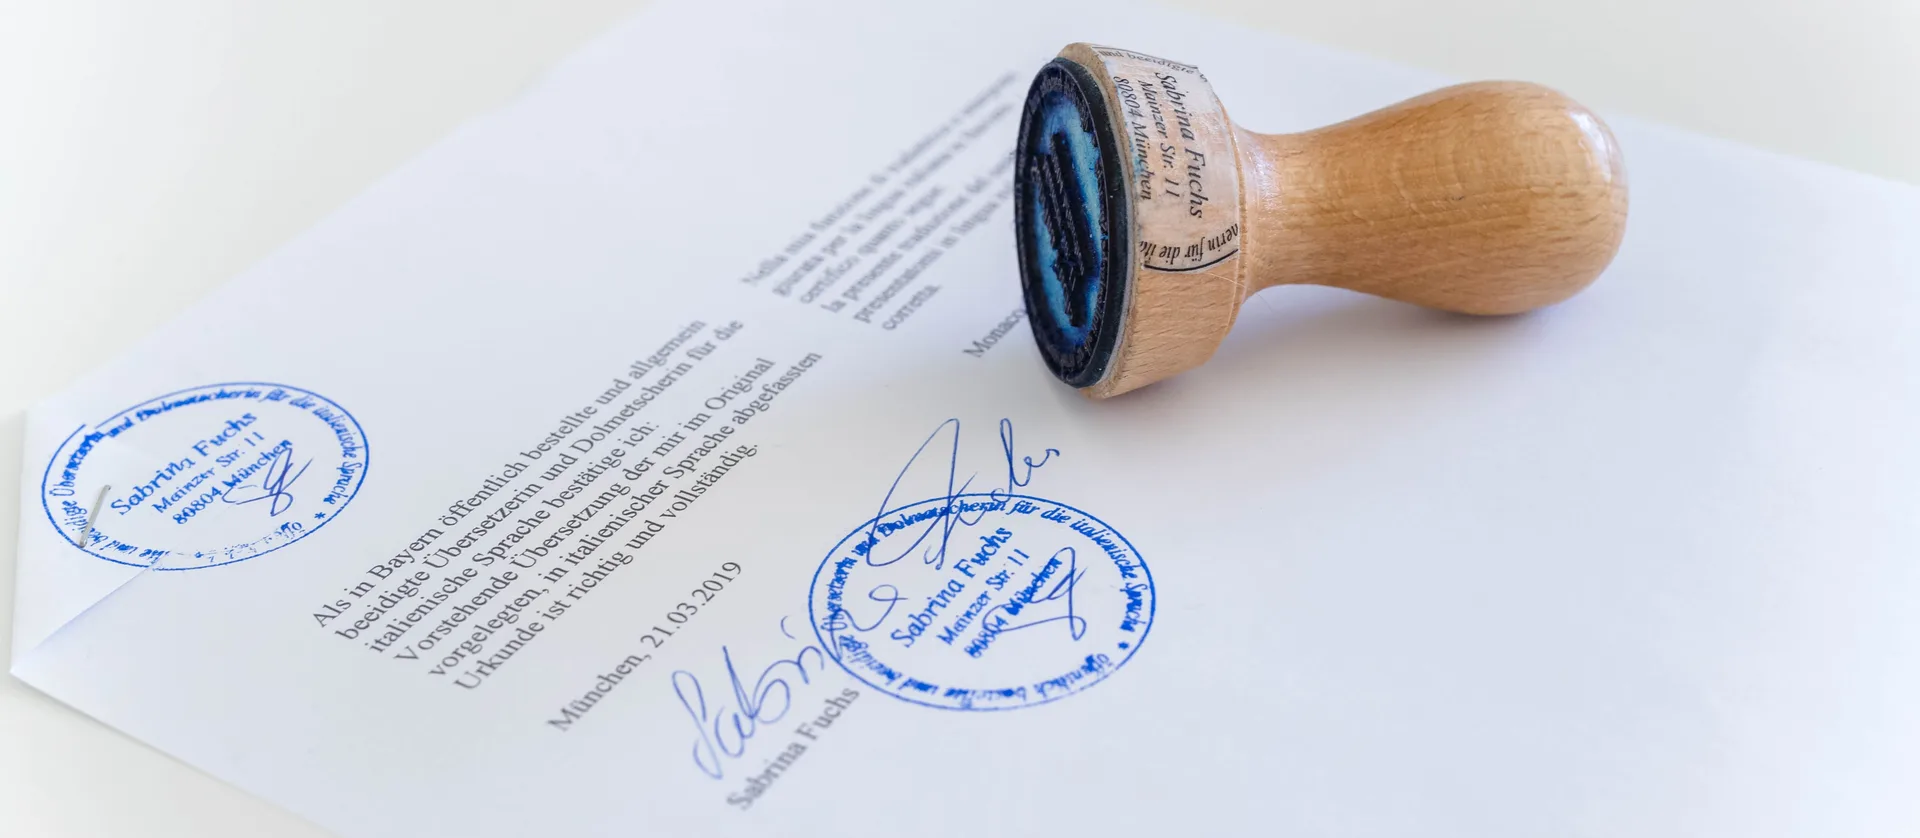 Als in Bayern öffentlich bestellte und allgemein
beeidigte Übersetzerin und Dolmetscherin für die
italienische Sprache bestätige ich:
Vorstehende Übersetzung der mir im Original
vorgelegten, in italienischer Sprache abgefassten
Urkunde ist richtig und vollständig.
München, 21.03.2019
Sabrina Fuchs
Sabrina Fuchs
Nella mia funzione di
giurata per la lingua italiana
certifico quanto segue:
la presente traduzione
presentatomi in lingua
corretta.
Monaco
Übersetzerin und Dolmetscherin für die italienische Sprache * öffentlich bestellte und beeidigte
Sabrina Fuchs
Mainzer Str. 11
80804 München
Übersetzerin und Dolmetscherin für die italienische Sprache * öffentlich bestellte und beeidigte
Sabrina Fuchs
Mainzer Str. 11
80804 München
und beeidigte
Sabrina Fuchs
Mainzer Str. 11
80804 München
nerin für die ita